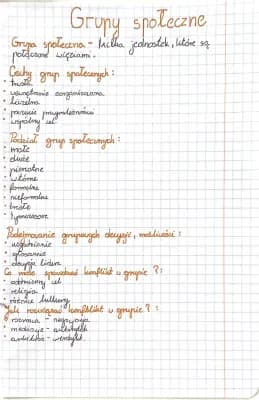 Grupy społeczne
Grupa społeczna - kilka jednostek, które są
połączone więziami.
Cechy grup społecznych:
• trwała
• wewnętrznie zorganizowana
• liczebna
• poczucie przynależności
• wspólny cel
Podział grup społecznych:
• małe
• duże
• pierwotne
• wtórne
• formalne
• nieformalne
• trwałe
• tymczasowe
Podejmowanie grupowych decyzji, możliwości:
• uzgodnienie
• głosowanie
• decyzja lidera
Co może spowodować konflikt w grupie?:
• odmienny cel
• religia
• różnice kulturowe
Jak rozwiązać konflikt w grupie?:
• rozmowa - negocjacja
• mediacje -
• arbitraż - werdykt.